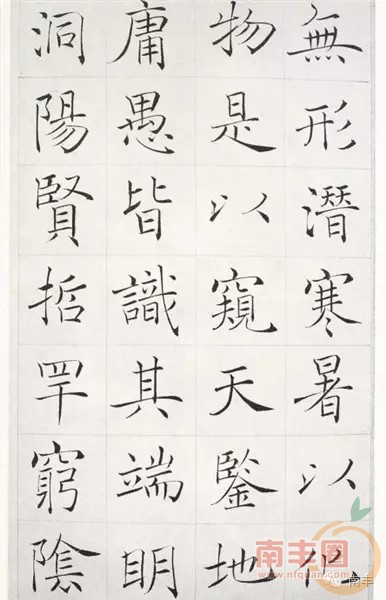 無形潛寒暑以化
物是以窺天鑒地
庸愚皆識其端明
洞陽賢哲罕窮陰
南丰圈
www.nfquan.com
南丰